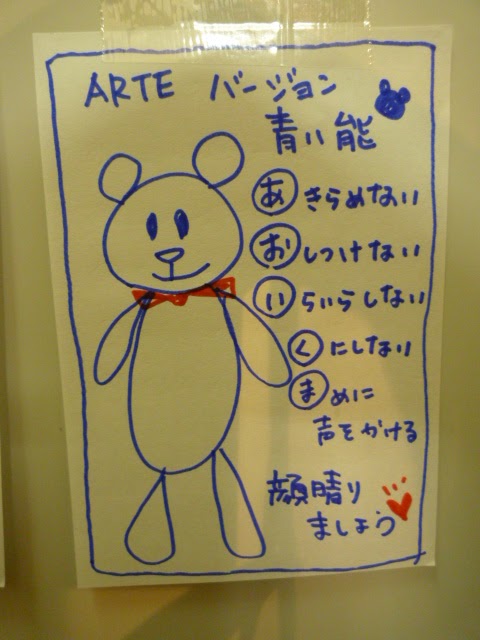 ARTE バージョン
青い能
あきらめない
おしつけない
いらいらしない
くにしない
まめに
声をかける
顔晴り
ましょう